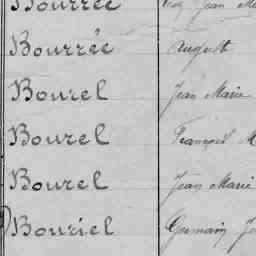 Bourrée Jean M
Bourrée August
Bourel Jean Marie
Bourel François M
Bourel Jean Marie
Bouriel Germain Je